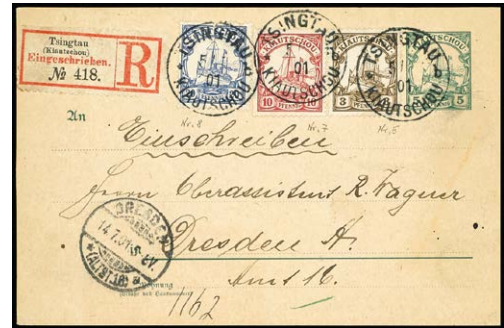 Tsingtau
(Kiautschou)
Eingeschrieben.
№ 418.
R
TSINGTAU
5
01
KIAUTSCHOU
KIAUTSCHOU
10 PFENNIG 10
TSINGTAU
01
KIAUTSCHOU
KIAUTSCHOU
3 PFENNIG 3
TSINGTAU
01
KIAUTSCHOU
KIAUTSCHOU
5
Nr. 8
Nr. 7
Nr. 5
An
Einschreiben
Herrn Oberassistent R. Wagner
Dresden A.
Amt 16.
DRESDEN
14.7.01
(ALTST.16) a
Wohnung
1162